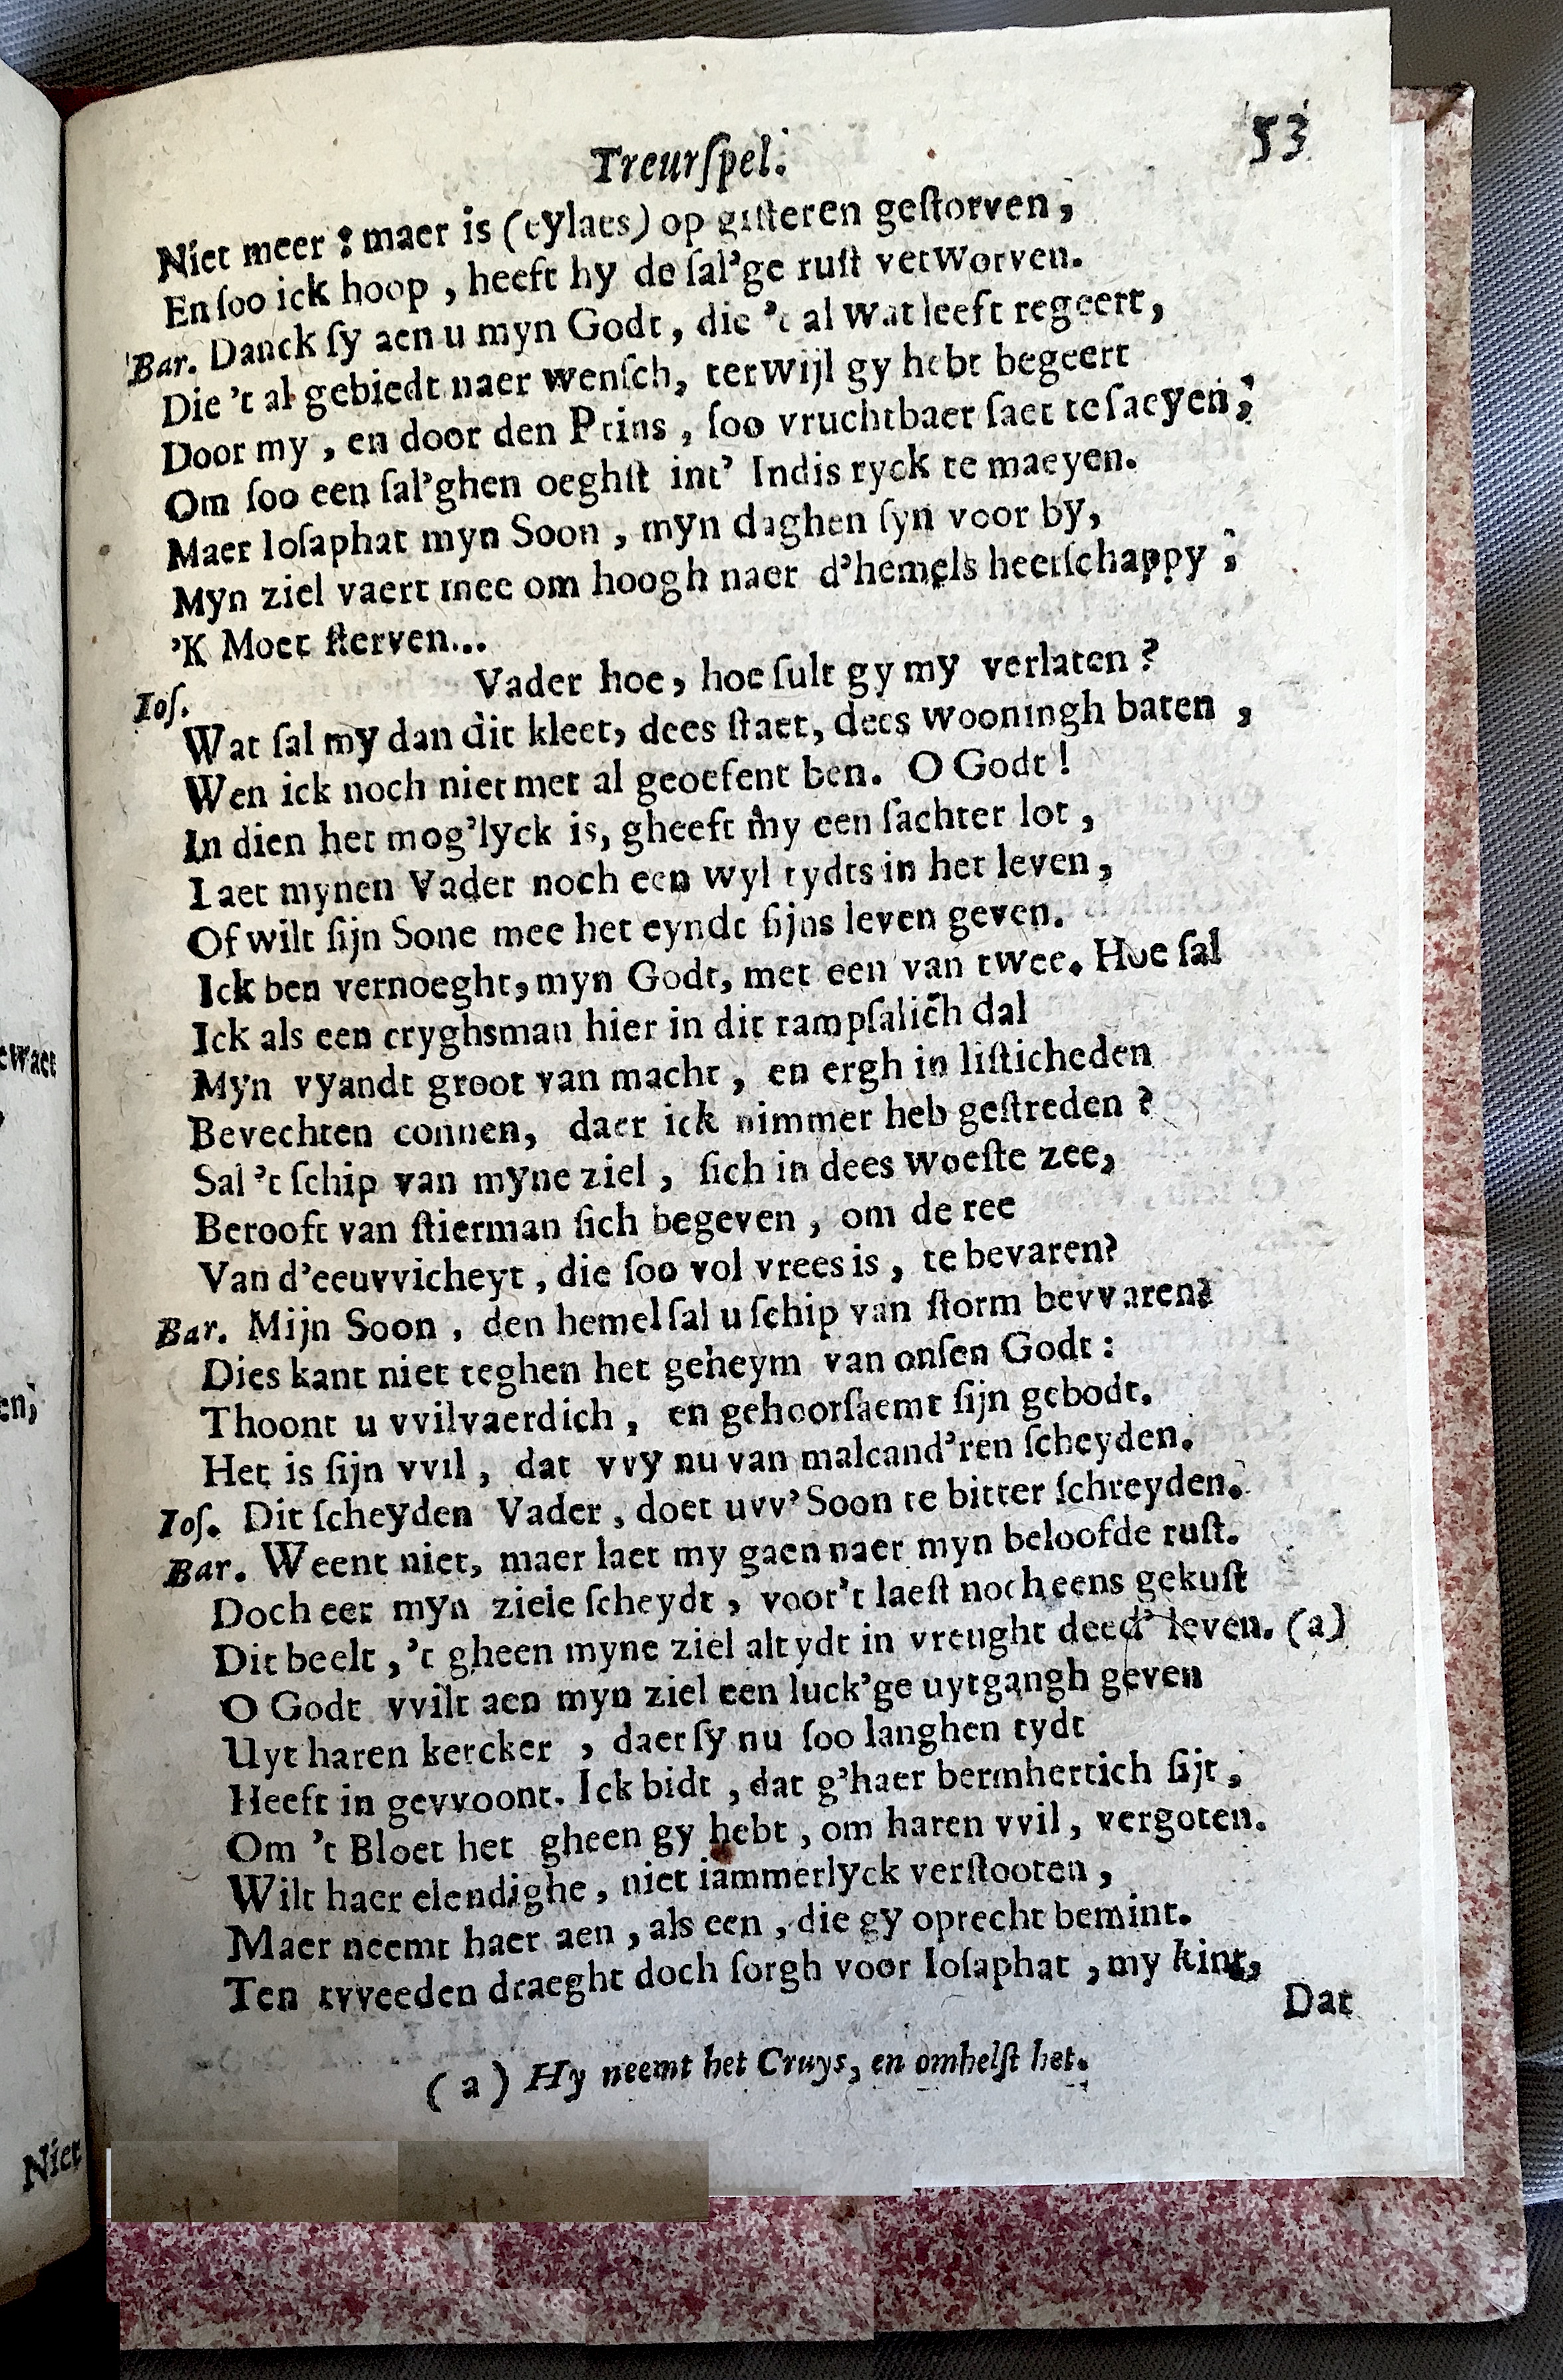 Treurſpel.
53
Niet meer : maer is (eylaes) op giſteren geſtorven,
En ſoo ick hoop, heeft hy de ſal'ge ruſt verworven.
Bar. Danck ſy aen u myn Godt, die 't al wat leeft regeert,
Die 't al gebiedt naer wenſch, terwijl gy hebt begeert
Door my, en door den Prins, ſoo vruchtbaer ſaet te ſaeyen,
Om ſoo een ſal'ghen oeghſt int' Indis ryck te maeyen.
Maer Ioſaphat myn Soon, myn daghen ſyn voor by,
Myn ziel vaert mee om hoogh naer d'hemels heerſchappy ;
'K Moet ſterven...
Ioſ. Vader hoe, hoe ſult gy my verlaten ?
Wat ſal my dan dit kleet, dees ſtaet, dees wooningh baten,
Wen ick noch niet met al geoefent ben. O Godt !
In dien het mog'lyck is, gheeft my een ſachter lot,
Laet mynen Vader noch een wyl tydts in het leven,
Of wilt ſijn Sone mee het eyndt ſijns leven geven.
Ick ben vernoeght, myn Godt, met een van twee. Hoe ſal
Ick als een cryghsman hier in dit rampſalich dal
Myn vyandt groot van macht, en ergh in liſticheden
Bevechten connen, daer ick nimmer heb geſtreden ?
Sal 't ſchip van myne ziel, ſich in dees woeſte zee,
Berooft van ſtierman ſich begeven, om de ree
Van d'eeuvvicheyt, die ſoo vol vrees is, te bevaren?
Bar. Mijn Soon, den hemel ſal u ſchip van ſtorm bevvaren?
Dies kant niet teghen het geheym van onſen Godt :
Thoont u vvilvaerdich, en gehoorſaemt ſijn gebodt.
Het is ſijn vvil, dat vvy nu van malcand'ren ſcheyden.
Ioſ. Dit ſcheyden Vader, doet uvv' Soon te bitter ſchreyden.
Bar. Weent niet, maer laet my gaen naer myn beloofde ruſt.
Doch eer myn ziele ſcheydt, voor't laeſt noch eens gekuſt
Dit beelt, 't gheen myne ziel altydt in vreught deed' leven. (a)
O Godt vvilt aen myn ziel een luck'ge uytgangh geven
Uyt haren kercker, daer ſy nu ſoo langhen tydt
Heeft in gevvoont. Ick bidt, dat g'haer bermhertich ſijt,
Om 't Bloet het gheen gy hebt, om haren vvil, vergoten.
Wilt haer elendighe, niet iammerlyck verſtooten,
Maer neemt haer aen, als een, die gy oprecht bemint.
Ten tvveeden draeght doch ſorgh voor Ioſaphat, my kint,
Dat
(a) Hy neemt het Cruys, en omhelſt het.
Niet